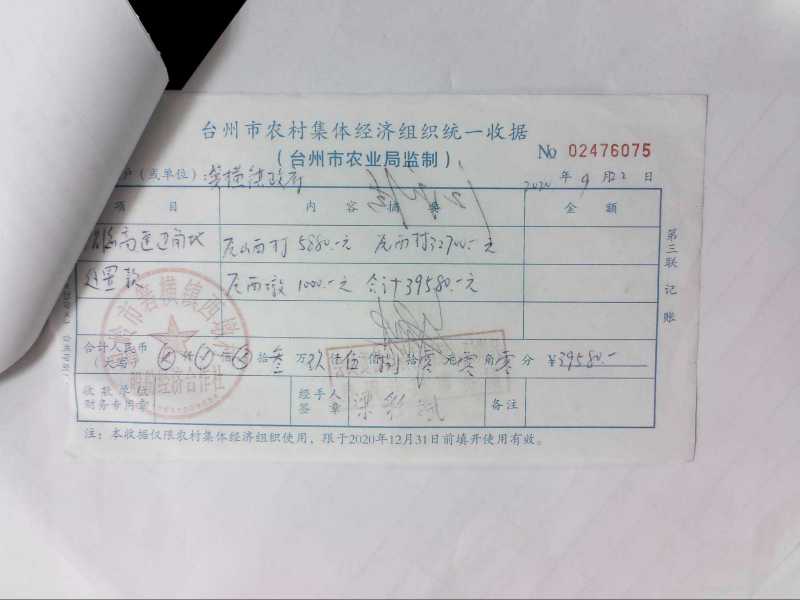 台州市农村集体经济组织统一收据
(台州市农业局监制)
No 02476075
户(或单位): 横镇政府
2020 年 9 月 2 日
项 目 内 容 摘 要 金 额
高速边角地 后山西村 5880.-元 后西村32700.-元
处置款 后西墩 1000.-元 合计39580.-元
合计人民币
(大写) 仟 佰 拾叁 万玖仟伍佰捌拾零元零角零分 ¥39580.-
收款单位
财务专用章
经手人
签 章
备注
注:本收据仅限农村集体经济组织使用,限于2020年12月31日前填开使用有效。
第三联 记账
横镇西
经济合作社